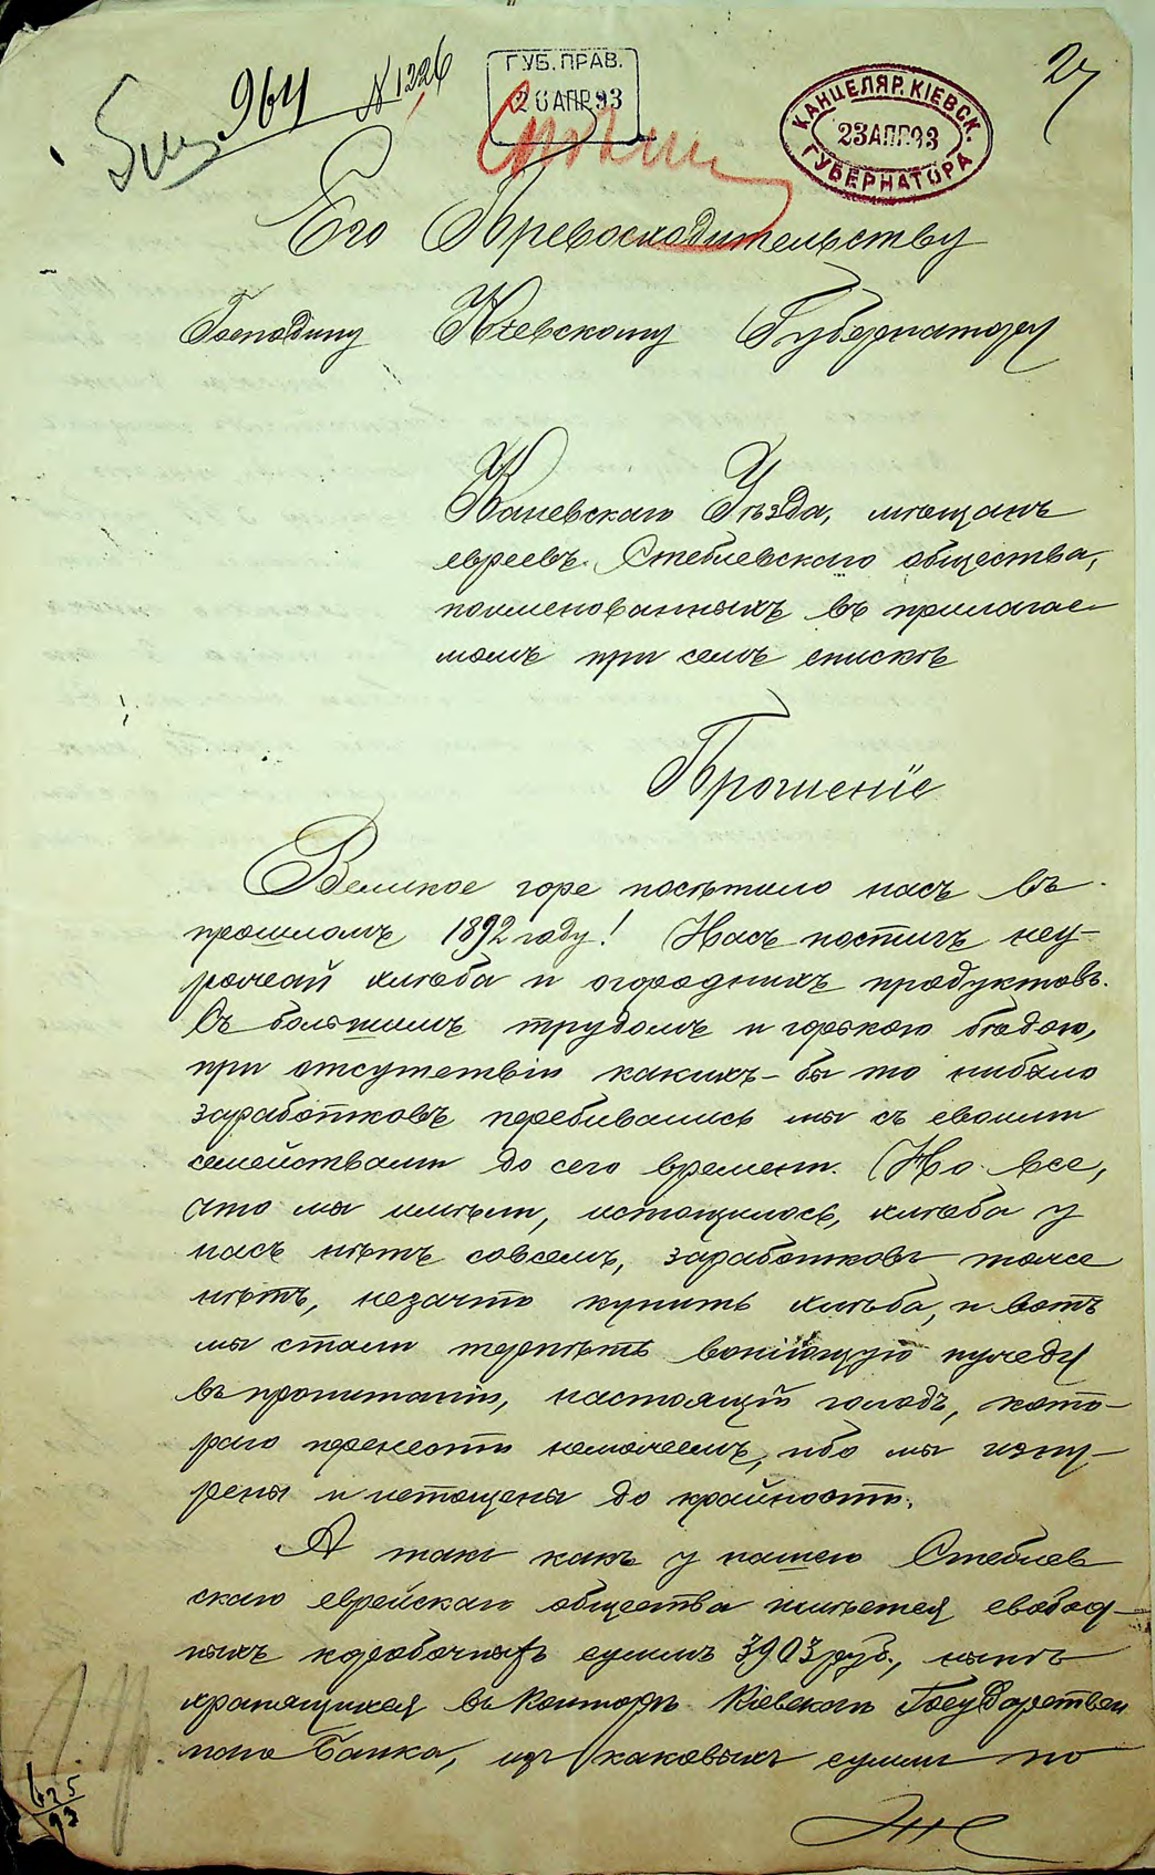 964 N 1226
ГУБ. ПРАВ.
26 АПР. 93
КАНЦЕЛЯР. КІЕВСК.
23 АПР. 93
ГУБЕРНАТОРА
Его Превосходительству
Господину Кіевскому Губернатору
Каневскаго Уѣзда, мѣщанъ
евреевъ Стеблевскаго общества,
поименованныхъ въ прилагае-
момъ при семъ спискѣ
Прошеніе
Великое горе посѣтило насъ въ
прошломъ 1892 году! Насъ постигъ неу-
рожай хлѣба и огородныхъ продуктовъ.
Съ большимъ трудомъ и горькою бѣдою,
при отсутствіи какихъ-бы то нибыло
заработковъ перебивались мы съ своими
семействами до сего времени. Но все,
что мы имѣли, истощилось, хлѣба у
насъ нѣтъ совсемъ, заработковъ тоже
нѣтъ, незачто купить хлѣба, и вотъ
мы стали терпѣть вопіющую нужду
въ пропитаніи, настоящій голодъ, кото-
раго перенести неможемъ, ибо мы изну-
рены и истощены до крайности.
А такъ какъ у нашего Стеблев
скаго еврейскаго общества имѣется свобод-
ныхъ коробочныхъ суммъ 3903 руб., нынѣ
хранящихся въ Конторѣ Кіевскаго Государствен
наго Банка, изъ каковыхъ суммъ по
625
93